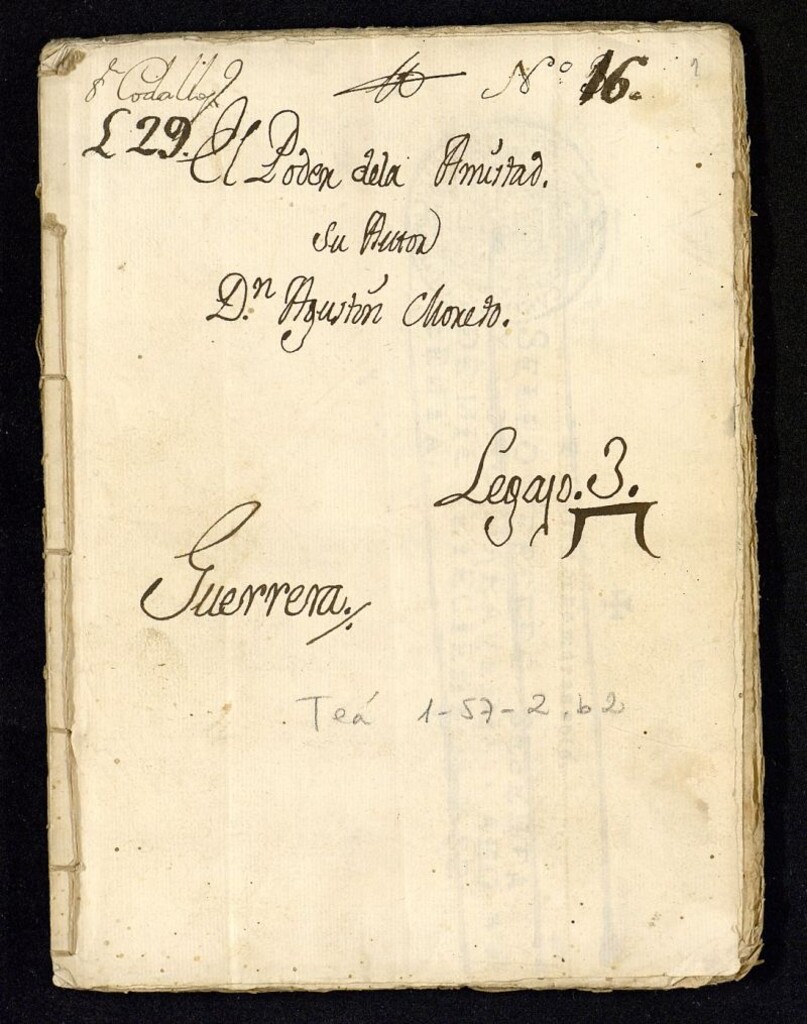 Codallos Nº 16.
L 29. El Poder dela Amistad.
Su Autor
D.n Agustin Moreto.
Legajo. 3.
Guerrera.
Teá 1-57-2. b2